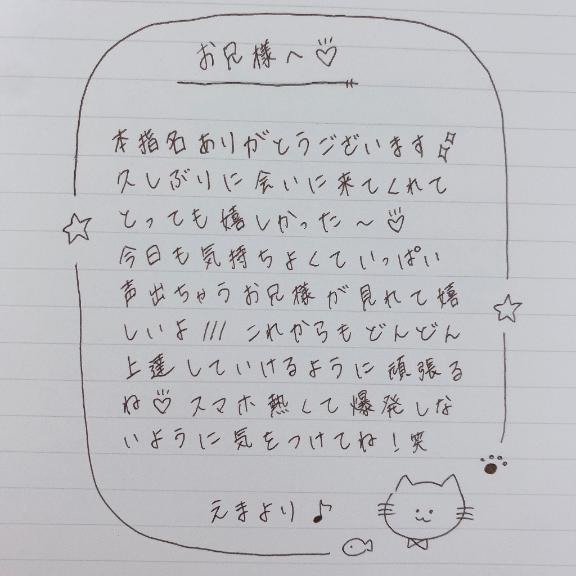 お兄様へ♡
本指名ありがとうございます
久しぶりに会いに来てくれて
とっても嬉しかった〜♡
今日も気持ちよくていっぱい
声出ちゃうお兄様が見れて嬉
しいよ/// これからもどんどん
上達していけるように頑張る
ね♡ スマホ熱くて爆発しな
いように気をつけてね！笑
えまより♪